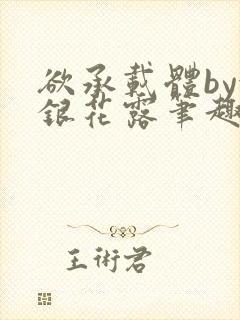 欲承載體by
銀花露筆趣
王術君